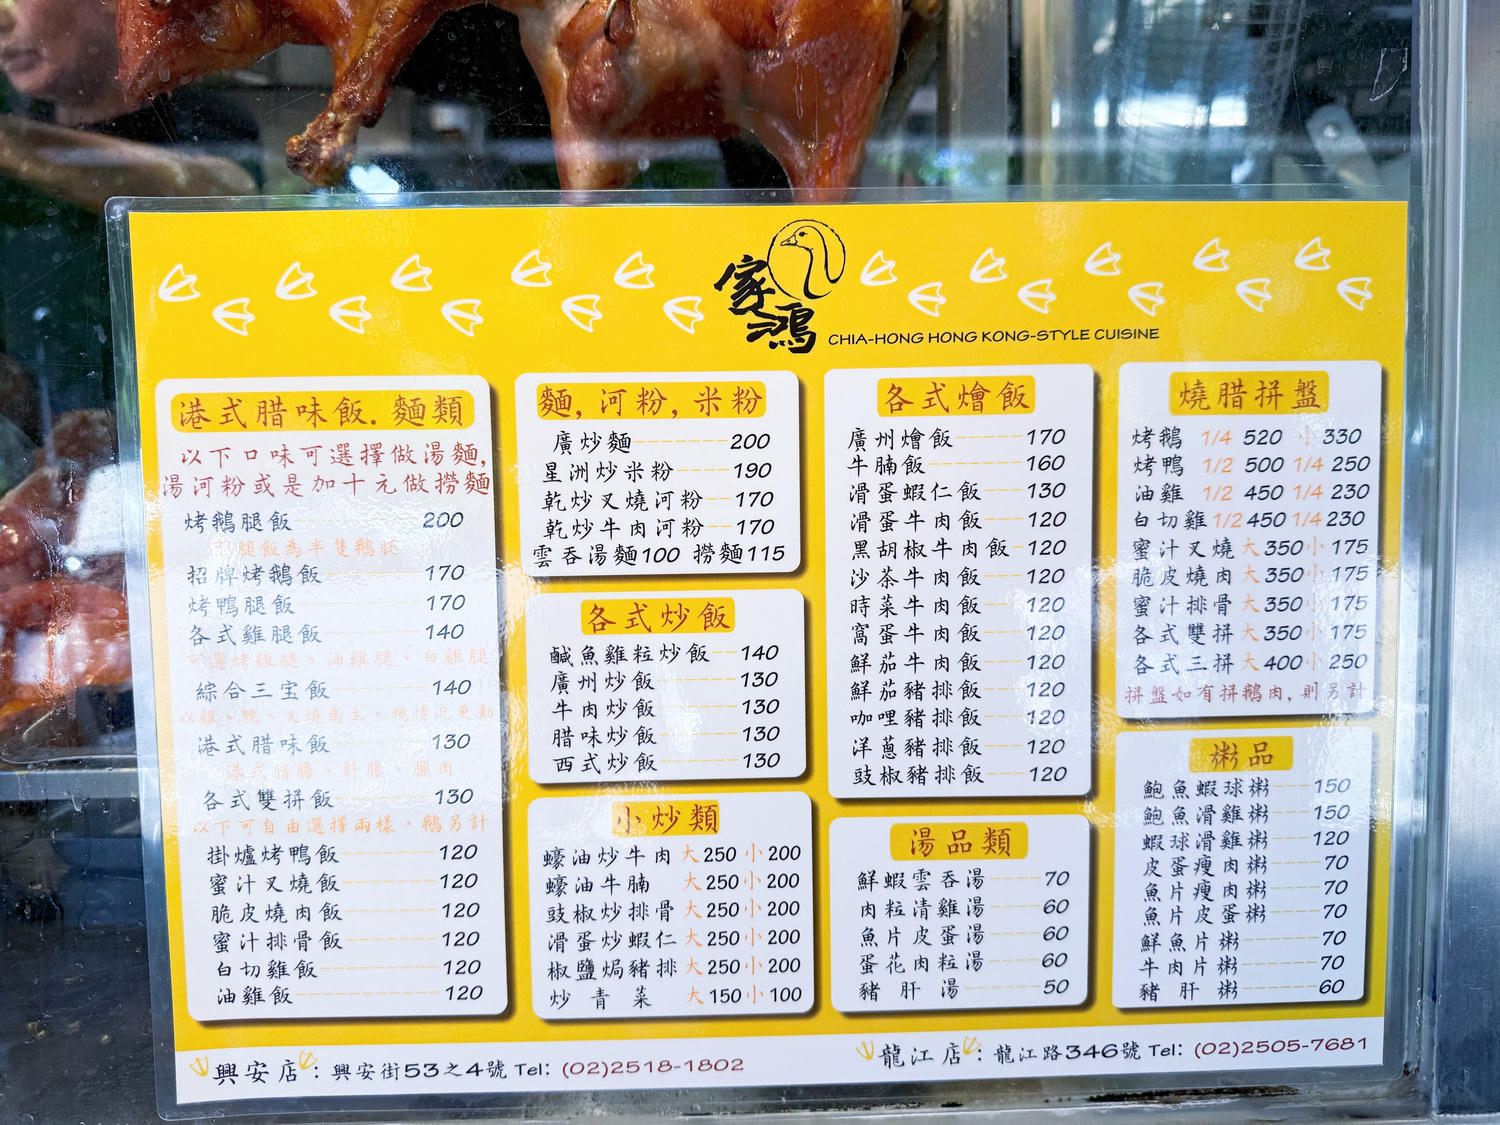 家鴻
CHIA-HONG HONG KONG-STYLE CUISINE
港式腊味飯．麵類
以下口味可選擇做湯麵，
湯河粉或是加十元做撈麵
烤鵝腿飯 200
腿飯為半隻鵝腿
招牌烤鵝飯 170
烤鴨腿飯 170
各式雞腿飯 140
可選烤雞腿、油雞腿、白雞腿
綜合三宝飯 140
以雞、鴨、叉燒為主，視情況更動
港式腊味飯 130
港式腊腸、肝腸、臘肉
各式雙拼飯 130
以下可自由選擇兩樣，鵝另計
掛爐烤鴨飯 120
蜜汁叉燒飯 120
脆皮燒肉飯 120
蜜汁排骨飯 120
白切雞飯 120
油雞飯 120
麵，河粉，米粉
廣炒麵 200
星洲炒米粉 190
乾炒叉燒河粉 170
乾炒牛肉河粉 170
雲吞湯麵100 撈麵115
各式炒飯
鹹魚雞粒炒飯 140
廣州炒飯 130
牛肉炒飯 130
腊味炒飯 130
西式炒飯 130
小炒類
蠔油炒牛肉 大250 小200
蠔油牛腩 大250 小200
豉椒炒排骨 大250 小200
滑蛋炒蝦仁 大250 小200
椒鹽焗豬排 大250 小200
炒青菜 大150 小100
各式燴飯
廣州燴飯 170
牛腩飯 160
滑蛋蝦仁飯 130
滑蛋牛肉飯 120
黑胡椒牛肉飯 120
沙茶牛肉飯 120
時菜牛肉飯 120
窩蛋牛肉飯 120
鮮茄牛肉飯 120
鮮茄豬排飯 120
咖哩豬排飯 120
洋蔥豬排飯 120
豉椒豬排飯 120
湯品類
鮮蝦雲吞湯 70
肉粒清雞湯 60
魚片皮蛋湯 60
蛋花肉粒湯 60
豬肝湯 50
燒腊拼盤
烤鵝 1/4 520 小 330
烤鴨 1/2 500 1/4 250
油雞 1/2 450 1/4 230
白切雞 1/2 450 1/4 230
蜜汁叉燒 大350 小175
脆皮燒肉 大350 小175
蜜汁排骨 大350 小175
各式雙拼 大350 小175
各式三拼 大400 小250
拼盤如有拼鵝肉，則另計
粥品
鮑魚蝦球粥 150
鮑魚滑雞粥 150
蝦球滑雞粥 120
皮蛋瘦肉粥 70
魚片瘦肉粥 70
魚片皮蛋粥 70
鮮魚片粥 70
牛肉片粥 70
豬肝粥 60
興安店：興安街53之4號 Tel: (02)2518-1802
龍江店：龍江路346號 Tel: (02)2505-7681